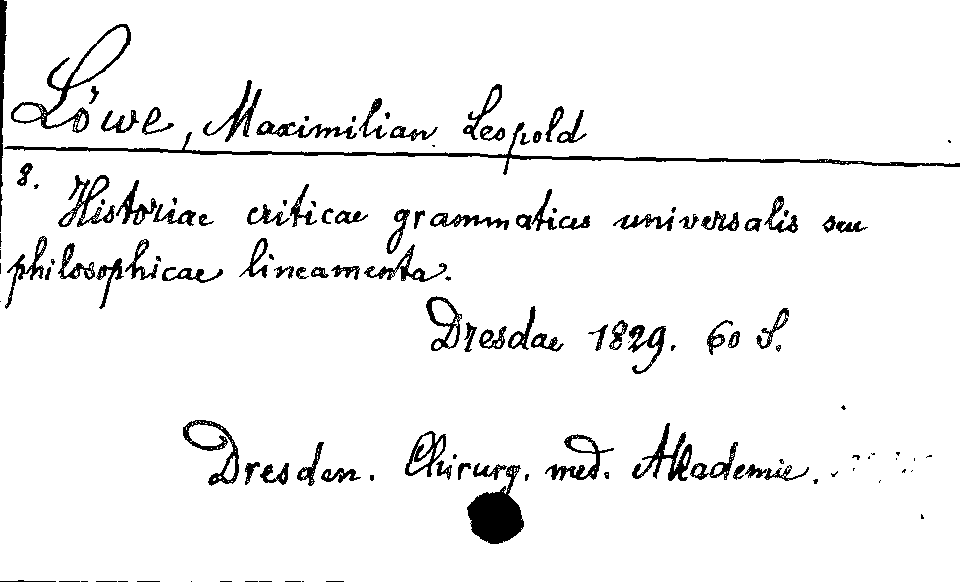 Löwe, Maximilian Leopold
8.
Historiae criticae grammatices universalis seu
philosophicae lineamenta.
Dresdae 1829. 60 S.
Dresden. Chirurg. med. Akademie.